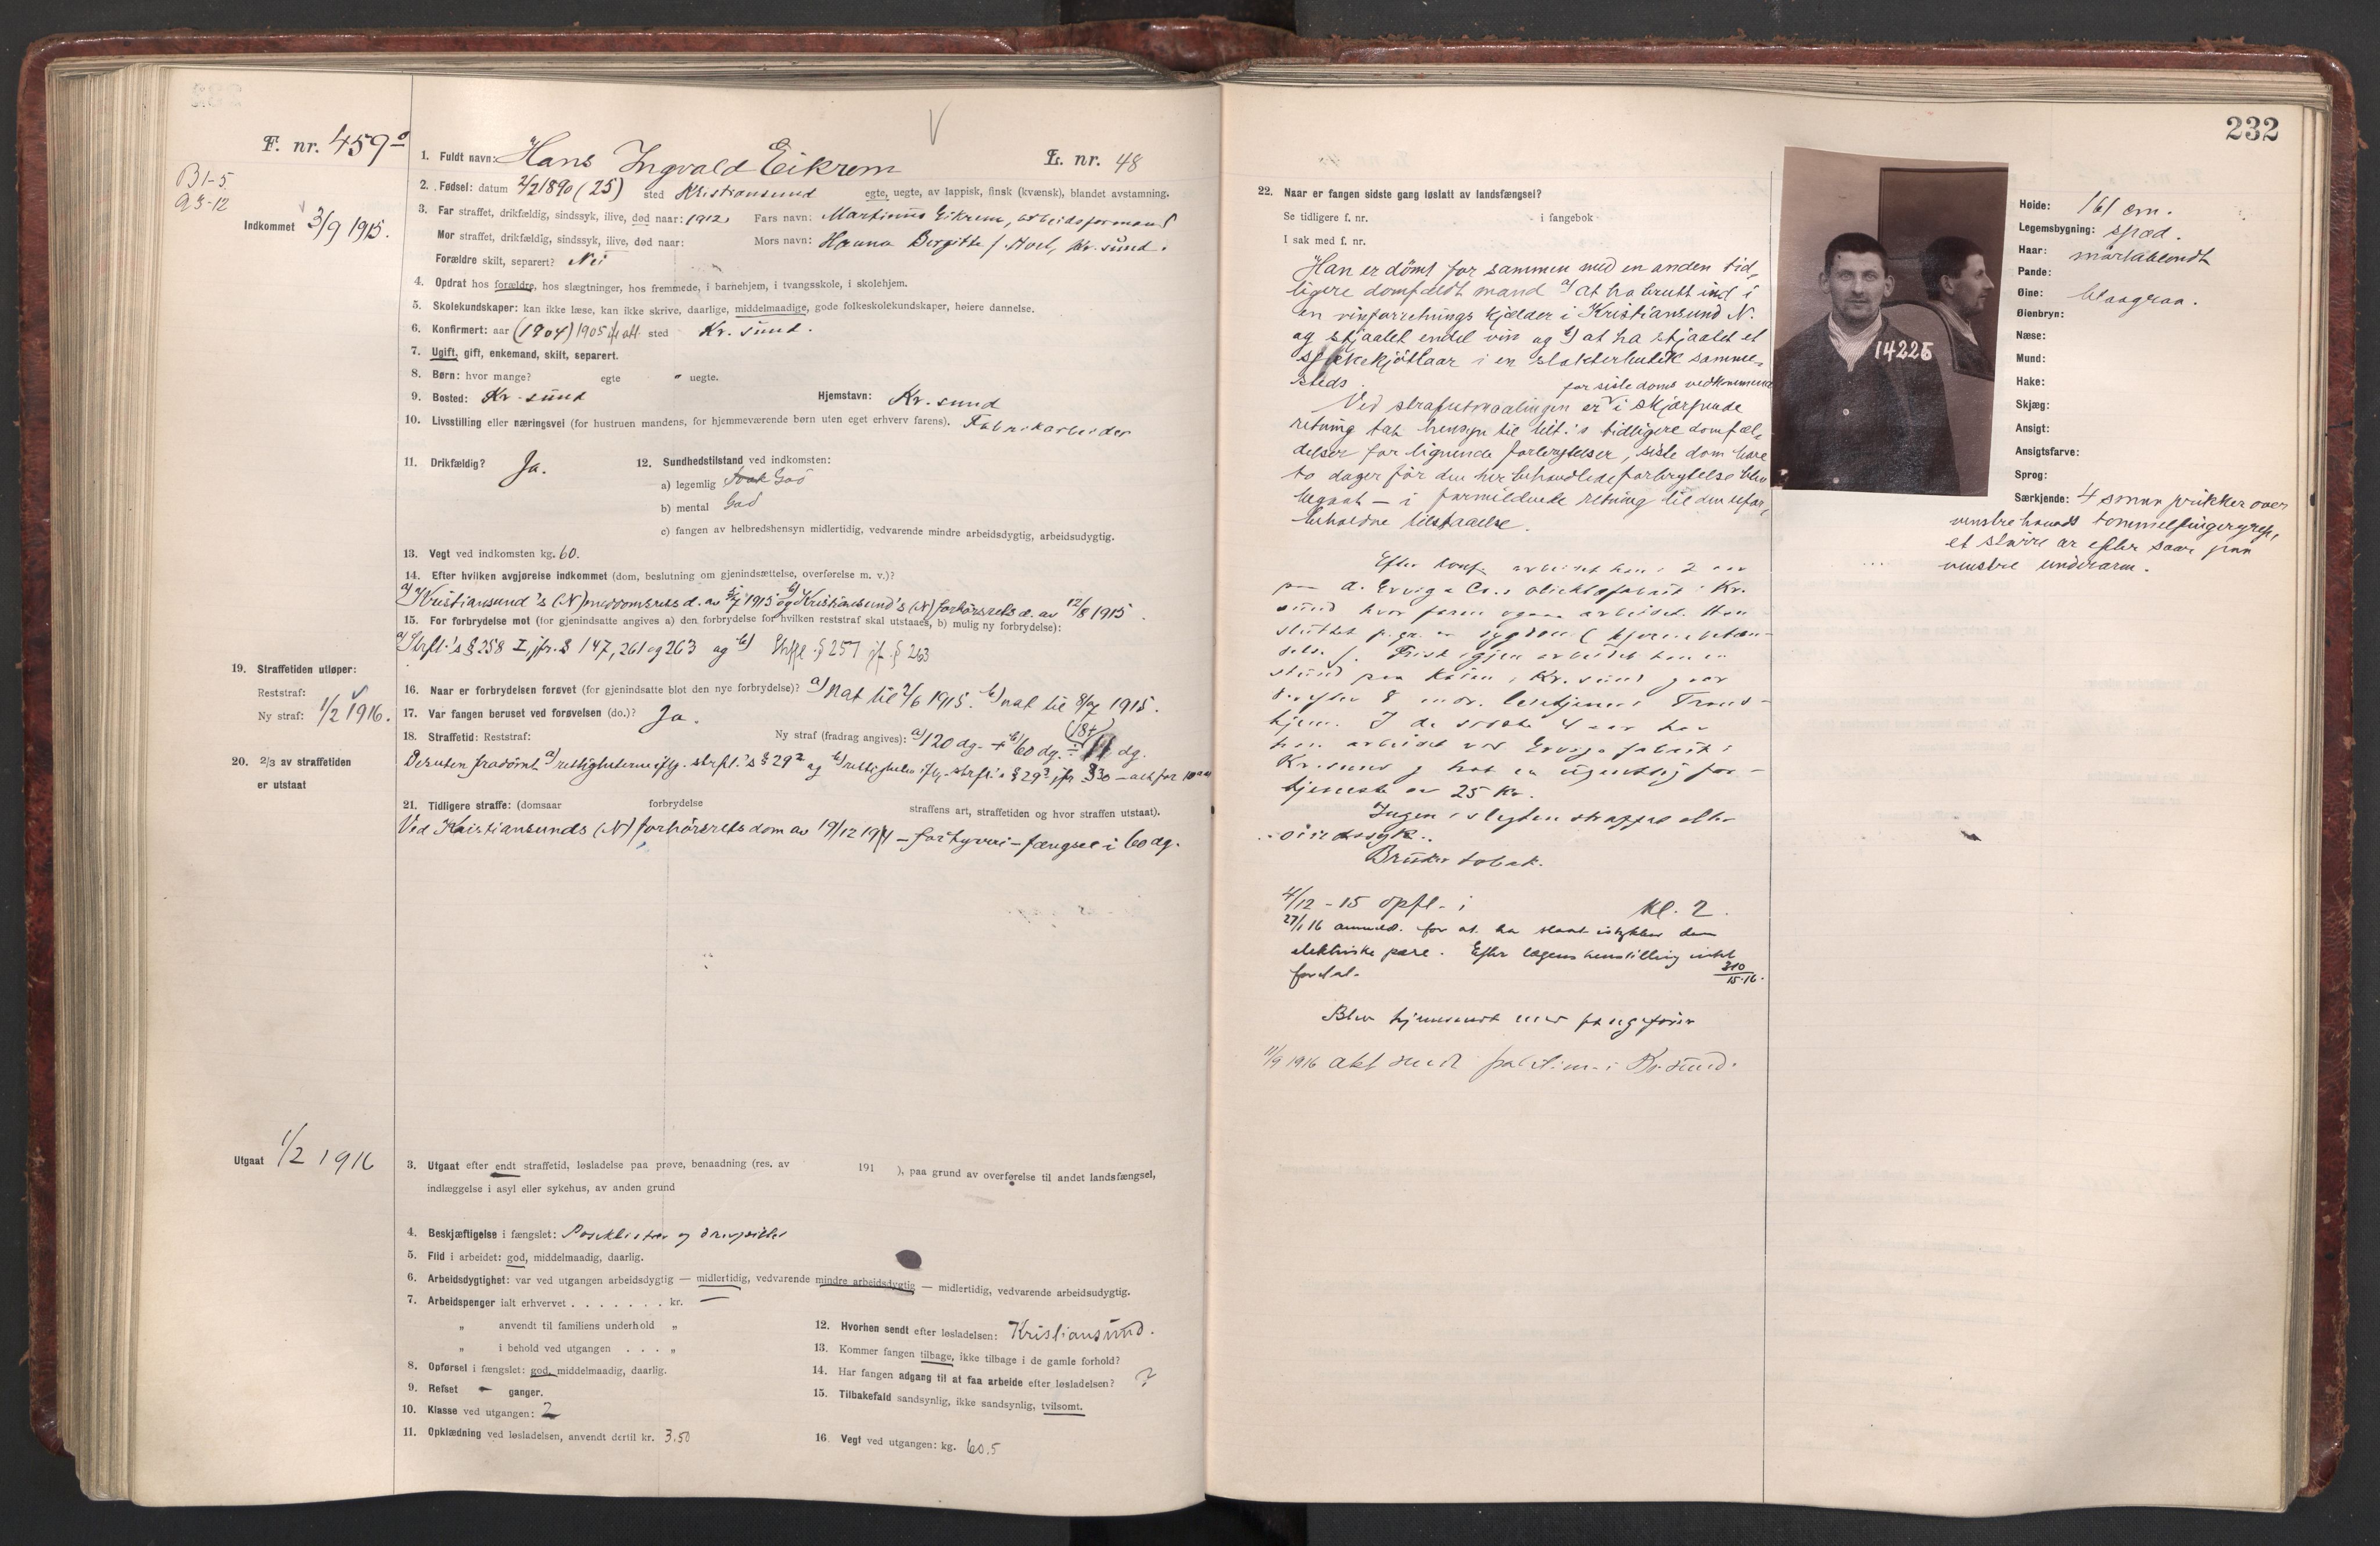 F. nr. 459
B 1-5
a 3-12
Indkommet 3/9 1915.
1. Fuldt navn: Hans Ingvald Eikrem L. nr. 48
2. Fødsel: datum 2/2 1890 (25) sted Kristiansund egte, uegte, av lappisk, finsk (kvænsk), blandet avstamning.
3. Far straffet, drikfældig, sindssyk, ilive, død naar: 1912. Fars navn: Martinus Eikrem, arbeidsformand
Mor straffet, drikfældig, sindssyk, ilive, død naar: Mors navn: Hanna Birgitte f. Hoel, Kr. sund.
Forældre skilt, separert? Nei
4. Opdrat hos forældre, hos slægtninger, hos fremmede, i barnehjem, i tvangsskole, i skolehjem.
5. Skolekundskaper: kan ikke læse, kan ikke skrive, daarlige, middelmaadige, gode folkeskolekundskaper, høiere dannelse.
6. Konfirmert: aar (1904) 1905 att. sted Kr. sund.
7. Ugift, gift, enkemand, skilt, separert.
8. Børn: hvor mange? egte " uegte.
9. Bosted: Kr. sund Hjemstavn: Kr. sund
10. Livsstilling eller næringsvei (for hustruen mandens, for hjemmeværende børn uten eget erhverv farens). Fabrikarbeider
11. Drikfældig? Ja. 12. Sundhedstilstand ved indkomsten:
a) legemlig Svak God
b) mental God
c) fangen av helbredshensyn midlertidig, vedvarende mindre arbeidsdygtig, arbeidsudygtig.
13. Vegt ved indkomsten kg. 60.
14. Efter hvilken avgjørelse indkommet (dom, beslutning om gjenindsættelse, overførelse m. v.)?
a) Kristiansund's (N) meddomsrets d. av /7 1915 og b) Kristiansund's (N) forhørsrets d. av 12/8 1915.
15. For forbrydelse mot (for gjenindsatte angives a) den forbrydelse for hvilken reststraf skal utstaaes, b) mulig ny forbrydelse):
a) Strfl.'s § 258 I, jfr. § 147, 261 og 263 og b) Strfl. § 257 jf. § 263
19. Straffetiden utløper:
Reststraf:
Ny straf: 1/2 1916.
16. Naar er forbrydelsen forøvet (for gjenindsatte blot den nye forbrydelse)? a) nat til 2/6 1915. b) nat til 8/7 1915.
17. Var fangen beruset ved forøvelsen (do.)? Ja.
18. Straffetid: Reststraf: Ny straf (fradrag angives): a) 120 dg. + b) 60 dg. ÷ (18+) 11 dg.
20. 2/3 av straffetiden
er utstaat
Desuten fradømt a) rettigheterne iflg. strfl.'s § 29² og b) rettigheder iflg. strfl.'s § 29² jfr. § 30 — alt for 10 aar
21. Tidligere straffe: (domsaar forbrydelse straffens art, straffetiden og hvor straffen utstaat).
Ved Kristiansunds (N) forhørsrets dom av 19/12 1914 — for tyveri — fængsel i 60 dg.
Utgaat 1/2 1916
3. Utgaat efter endt straffetid, løsladelse paa prøve, benaadning (res. av 191 ), paa grund av overførelse til andet landsfængsel,
indlæggelse i asyl eller sykehus, av anden grund
4. Beskjæftigelse i fængslet: Poseklistrer og
5. Flid i arbeidet: god, middelmaadig, daarlig.
6. Arbeidsdygtighet: var ved utgangen arbeidsdygtig — midlertidig, vedvarende mindre arbeidsdygtig — midlertidig, vedvarende arbeidsudygtig.
7. Arbeidspenger ialt erhvervet . . . . . . . kr. —
„ anvendt til familiens underhold „
„ i behold ved utgangen . . . „
8. Opførsel i fængslet: god, middelmaadig, daarlig.
9. Refset — ganger.
10. Klasse ved utgangen: 2
11. Opklædning ved løsladelsen, anvendt dertil kr. 3.50
12. Hvorhen sendt efter løsladelsen: Kristiansund.
13. Kommer fangen tilbage, ikke tilbage i de gamle forhold?
14. Har fangen adgang til at faa arbeide efter løsladelsen? ?
15. Tilbakefald sandsynlig, ikke sandsynlig, tvilsomt.
16. Vegt ved utgangen: kg. 60.5
232
22. Naar er fangen sidste gang løslatt av landsfængsel?
Se tidligere f. nr. i fangebok
I sak med f. nr.
Han er dømt for sammen med en anden tid-
ligere domfældt mand a) at ha brutt ind i
en vinforretnings kjelder i Kristiansund N.
og stjaalet endel vin og b) at ha stjaalet et
spekekjøtlaar i en slakterbutik samme-
steds.
for siste doms vedkommende
Ved strafutmaalingen er i skjærpende
retning tat hensyn til tilt.'s tidligere domfæl-
delser for lignende forbrytelser, siste dom bare
to dager før den her behandlede forbrytelse blev
begaat — i formildende retning til den ufor-
beholdne tilstaaelse.
Efter konf. arbeidet han i 2 aar
paa Kr.
sund hvor faren ogsaa arbeidet. Han
sluttet p. gr. av sygdom (
). Frisk igjen arbeidet han en
stund paa kaien i Kr. sund
8 mdr. Trond-
hjem. I de sidste 4 aar har
han arbeidet ved fabrik i
Kr. sund og hat en ugentlig for-
tjeneste av 25 kr.
Ingen i slegten straffet eller
sindssyk.
Bruker tobak.
4/12 - 15 opfl. i kl. 2.
27/1 16 anmeld. for at ha slaat istykker den
elektriske pære. Efter lægens henstilling intet
foretat. 310/15-16.
Blev hjemsendt med fangefører
11/9 1916 akt sendt politim. i Kr. sund.
14225
Høide: 161 cm.
Legemsbygning: spæd.
Haar: mørkblondt
Pande:
Øine: blaagraa.
Øienbryn:
Næse:
Mund:
Hake:
Skjæg:
Ansigt:
Ansigtsfarve:
Sprog:
Særkjende: 4 smaa prikker over
venstre haands tommelfingergrep,
et større ar efter saar paa
venstre underarm.